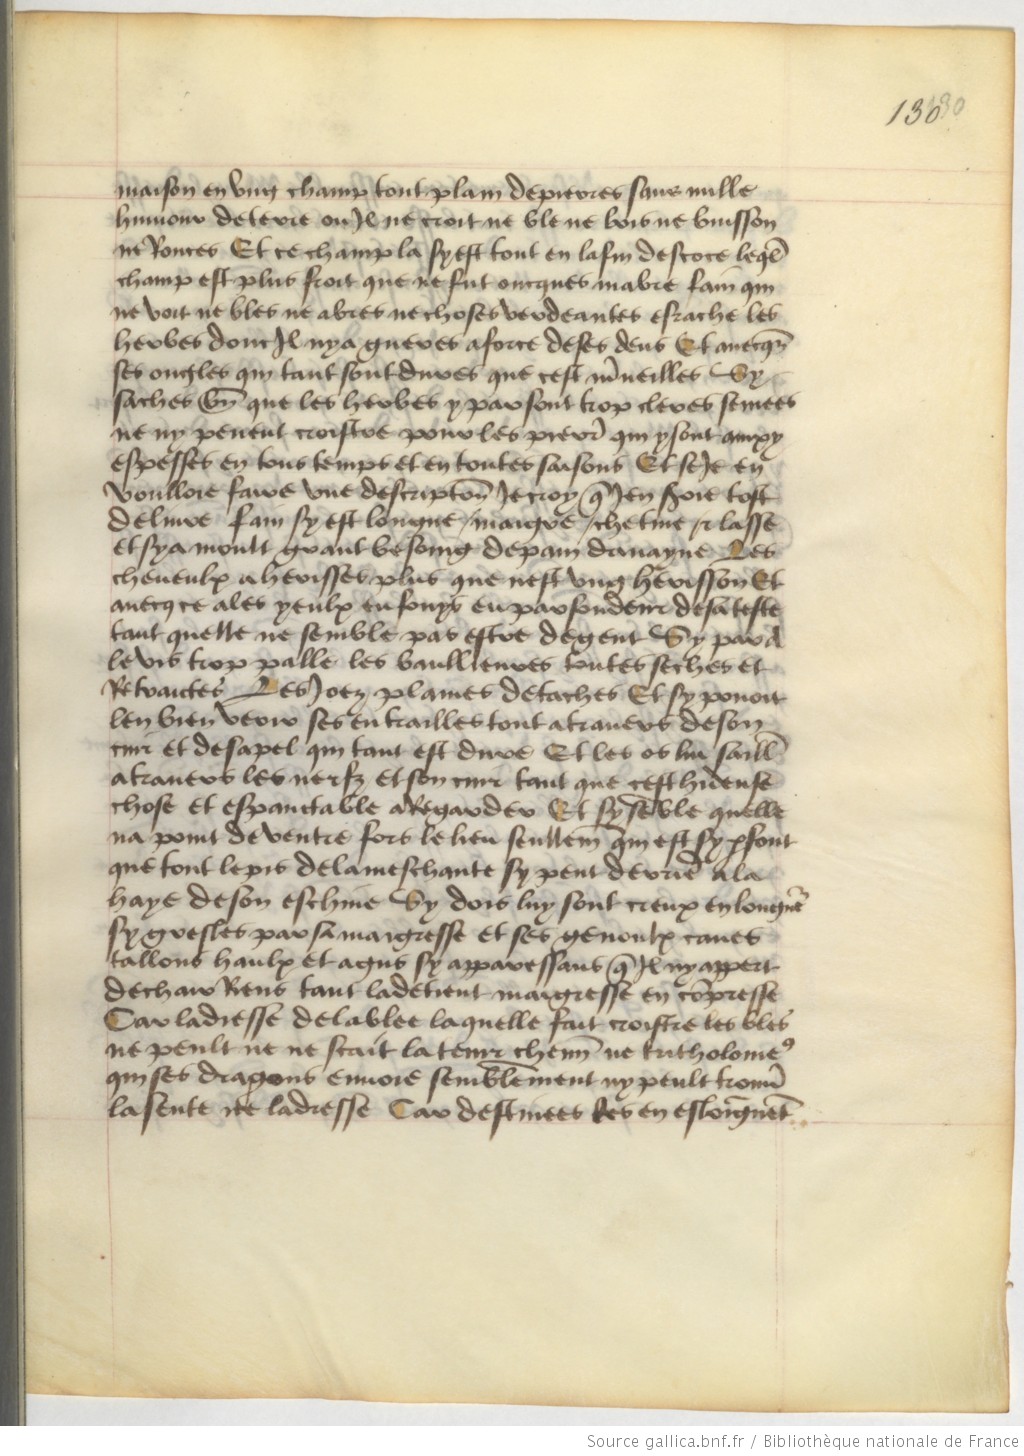 130
130
maison en vng champ tout plain de pierres sans nulle
humour de terre ou Il ne croit ne ble ne bois ne buisson
ne Ronces Et ce champ la sy est tout en la fin descoce leql̃
champ est plus froit que ne fut oncques mabre fain qui
ne voit ne bles ne abres ne choses verdeantes esrache les
herbes donc Il nya gueres a force de ses dens Et auecqz̃
ses ongles qui tant sont dures que cest m̃ueilles Sy
saches bñ que les herbes y par sont trop cleres semees
ne ny peuent croistre pour les pierr̃ qui y sont ainxy
espesses en tous temps et en toutes saisons Et se Je en
voulloie faire vne descriptoñ Je croy q̃ Jen seroie tost
deliure fain sy est longue / maigre / chetiue / et lasse
et sy a moult grant besoing de pain dauayne Les
cheueulx a herisses plus que nest vng herisson Et
auecq ce a les yeulx enfonys en parfondeur de sa teste
tant quelle ne semble pas estre de gent Sy par a
le vis trop palle les baullieures toutes seches et
Retraictes Les Joez plaines de taches Et sy pouoit
len bien veoir ses entrailles tout a trauers de son
cuir et de sa pel qui tant est dure Et les os luỉ saill̃
a trauers les nerfz et son cuir tant que cest hideuse
chose et espauctable a Regarder Et sy sẽble quelle
na point de ventre fors le lieu seullem̃ qui est sy ꝑfont
que tout le pis de la meschante sy peut derrie a la
haye de son eschine Sy dois luy sont creux en longuer̃
sy gresles par sa maigresse et ses genoulx caues
tallons haulx et agus sy apparessans q̃ Il ny appert
de chair Riens tant la detient maigresse en cõpresse
Car ladresse de la blee laquelle fait croistre les bles
ne peult ne ne scait la tenir chemĩ ne tritholomeꝰ
qui ses dragons enuoie semblement ny peult trouu̾
la sente ne ladresse Car destinees les en esloignẽt
Source gallica.bnf.fr / Bibliothèque nationale de France